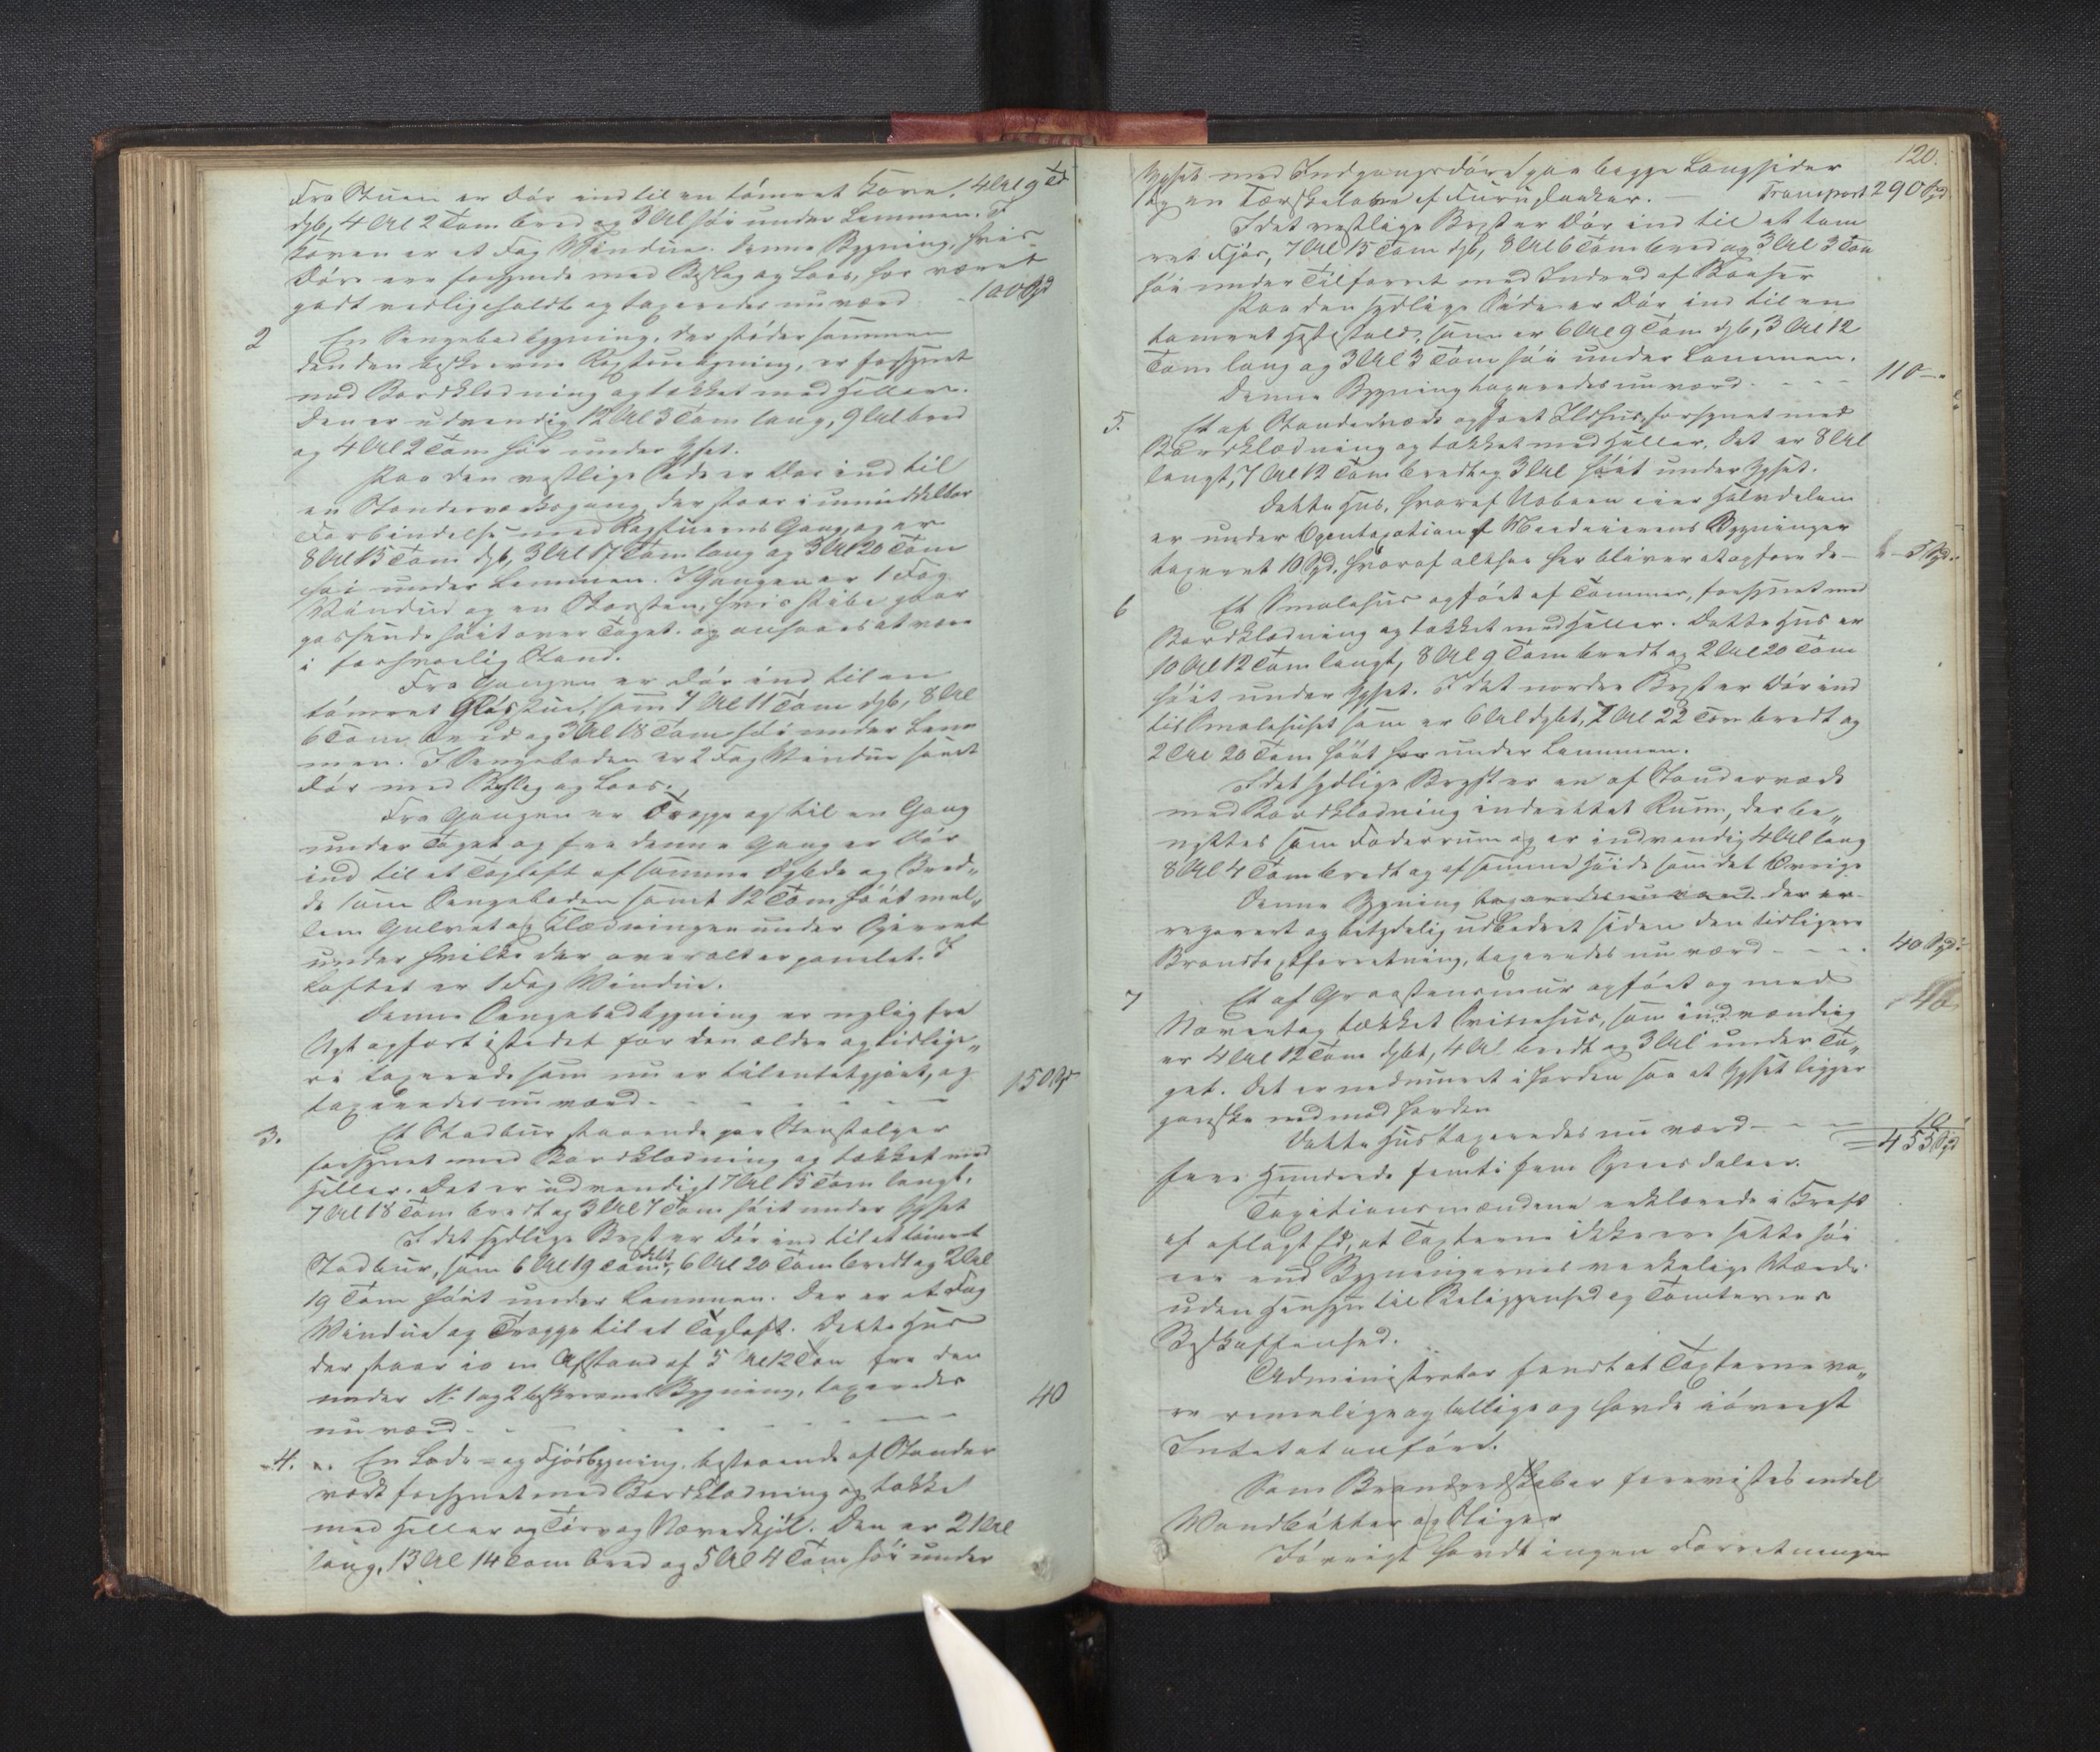 Fra Stuen er Dör ind til en tömret Kove, 4 Al 9 T
dyb, 4 Al 2 Tom bred og 3 Al höi under Lemmen. I
Koven er et Fag Vindue. Denne Bygning, hvis
Döre ere forsynede med Beslag og Laas, har været
godt vedligeholdt og taxeredes nu værd - 100 Spd
2 En Sengebodbygning, der stöder sammen
den den beskrevne Rögstuebygning, er forsynet
med Bordklædning og tækket med Heller.
Den er udvendig 12 Al 3 Tom lang, 9 Al bred
og 4 Al 2 Tom höi under Gpset.
Paa den vestlige Side er Dör ind til
en Standerværksgang, der staar i umiddelbar
Forbindelse med Rögstuens Gang, og er
8 Al 15 Tom dyb, 3 Al 17 Tom lang og 3 Al 20 Tom
höi under Lemmen. I Gangen er 1 Fag
Vindue og en Skorsten, hvis Pibe gaar
passende höit over Taget, og ansees at være
i forsvarlig Stand.
Fra Gangen er Dör ind til en
tömret Glasstue, som 7 Al 11 Tom dyb, 8 Al
6 Tom bred og 3 Al 18 Tom höi under Lem
men. I Sengeboden er 2 Fag Vindue samt
Dör med Beslag og Laas.
Fra Gangen er Trappe op til en Gang
under Taget og fra denne Gang er Dör
ind til et Tagloft af samme Dybde og Bred„
de som Sengeboden samt 12 Tom höit mel„
lem Gulvet og Klædningen under Sperret
under hvilke der overalt er panelet. I
Loftet er 1 Fag Vindue.
Denne Sengebodbygning er nylig fra
Nyt opfört istedet for den ældre og tidlige„
re taxerede som nu er tilintetgjort, og
taxeredes nu værd - - - - - 150 Spd
3. Et Stadbur staaende paa Stenstolper
forsynet med Bordklædning og tækket med
Heller. Det er udvendigt 7 Al 15 Tom langt,
7 Al 18 Tom bredt og 3 Al 7 Tom höit under Gpset
I det sydlige Bryst er Dör ind til et tömret
Stadbur, som 6 Al 19 Tom dybt, 6 Al 20 Tom bredt og 2 Al
19 Tom höit under Lemmen. Der er et Fag
Vindue og Trappe til et Tagloft. Dette Huus
der staar i en Afstand af 5 Al 12 Tom fra den
under No 1 og 2 beskrevne Bygning, taxeredes
nu værd - - - - - 40
4. En Lade- og Fjösbygning, bestaaende af Stander
værk forsynet med Bordklædning og tække
med Heller og Törv og Næverkjöl. Den er 21 Al
lang, 13 Al 14 Tom bred og 5 Al 4 Tom höi under
120.
Gpset med Indgangsdöre paa begge Langsider
og en Tærskelove af Furuplanker. - Transport 290 Spd
I det vestlige Bryst er Dör ind til et töm
ret Fjös, 7 Al 15 Tom dyb, 8 Al 6 Tom bred og 3 Al 3 Tom
höi under Tilfarret med Indred af Baaser
Paa den sydlige Side er Dör ind til en
tömret Hestestald, som er 6 Al 9 Tom dyb, 3 Al 12
Tom lang og 3 Al 3 Tom höi under Lemmen.
Denne Bygning taxeredes nu værd - - - 110 -
5. Et af Standerværk opfört Ildhus, forsynet med
Bordklædning og tækket med Heller. Det er 8 Al
langt, 7 Al 12 Tom bredt og 3 Al höit under Gpset.
Dette Hus, hvoraf Naboen eier Halvdelen
er under Omtaxation af Medeierens Bygninger
taxeret 10 Spd. hvoraf altsaa her bliver at opföre de - 5 Spd.
6 Et Smalehus opfört af Tömmer, forsynet med
Bordklædning og tækket med Heller. Dette Hus er
10 Al 12 Tom langt, 8 Al 9 Tom bredt og 2 Al 20 Tom
höit under Gpset. I det nordre Bryst er Dör ind
til Smalehuset som er 6 Al dybt, 7 Al 22 Tom bredt og
2 Al 20 Tom höit under Lemmen.
I det sydlige Bryst er en af Standerværk
med Bordklædning indrettet Rum, der be„
nyttes som Foderrum og er indvendig 4 Al lang
8 Al 4 Tom bredt og af samme Höide som det Övrige
Denne Bygning taxeredes nu værd der er
repareret og betydelig udbedret siden den tidligere
Brandtaxtforretning, taxeredes nu værd - - - 40 Spd
7 Et af Graastensmuur opfört og med
Nævertag tækket hus, som indvendig
er 4 Al 12 Tom dybt, 4 Al bredt og 3 Al under Ta„
get. Det er nedmuret i Jorden saa at Gpset ligger
ganske ned mod Jorden
Dette Hus taxeredes nu værd - - - 10
= 455 Spd
fire Hundrede femti fem Species Daler.
Taxationsmændene erklærede i Kraft
af aflagt Ed, at Taxterne ikke ere satte höi
ere end Bygningernes verkelige Værdi
uden Hensyn til Beliggenhed og Tomternes
Beskaffenhed.
Administrator fandt at Taxterne va„
re rimelige og billige og havde iövrigt
Intet at anföre.
Som Brandredskaber forevistes endel
Vandbötter og Stiger
Iövrigt havde ingen Forretningen